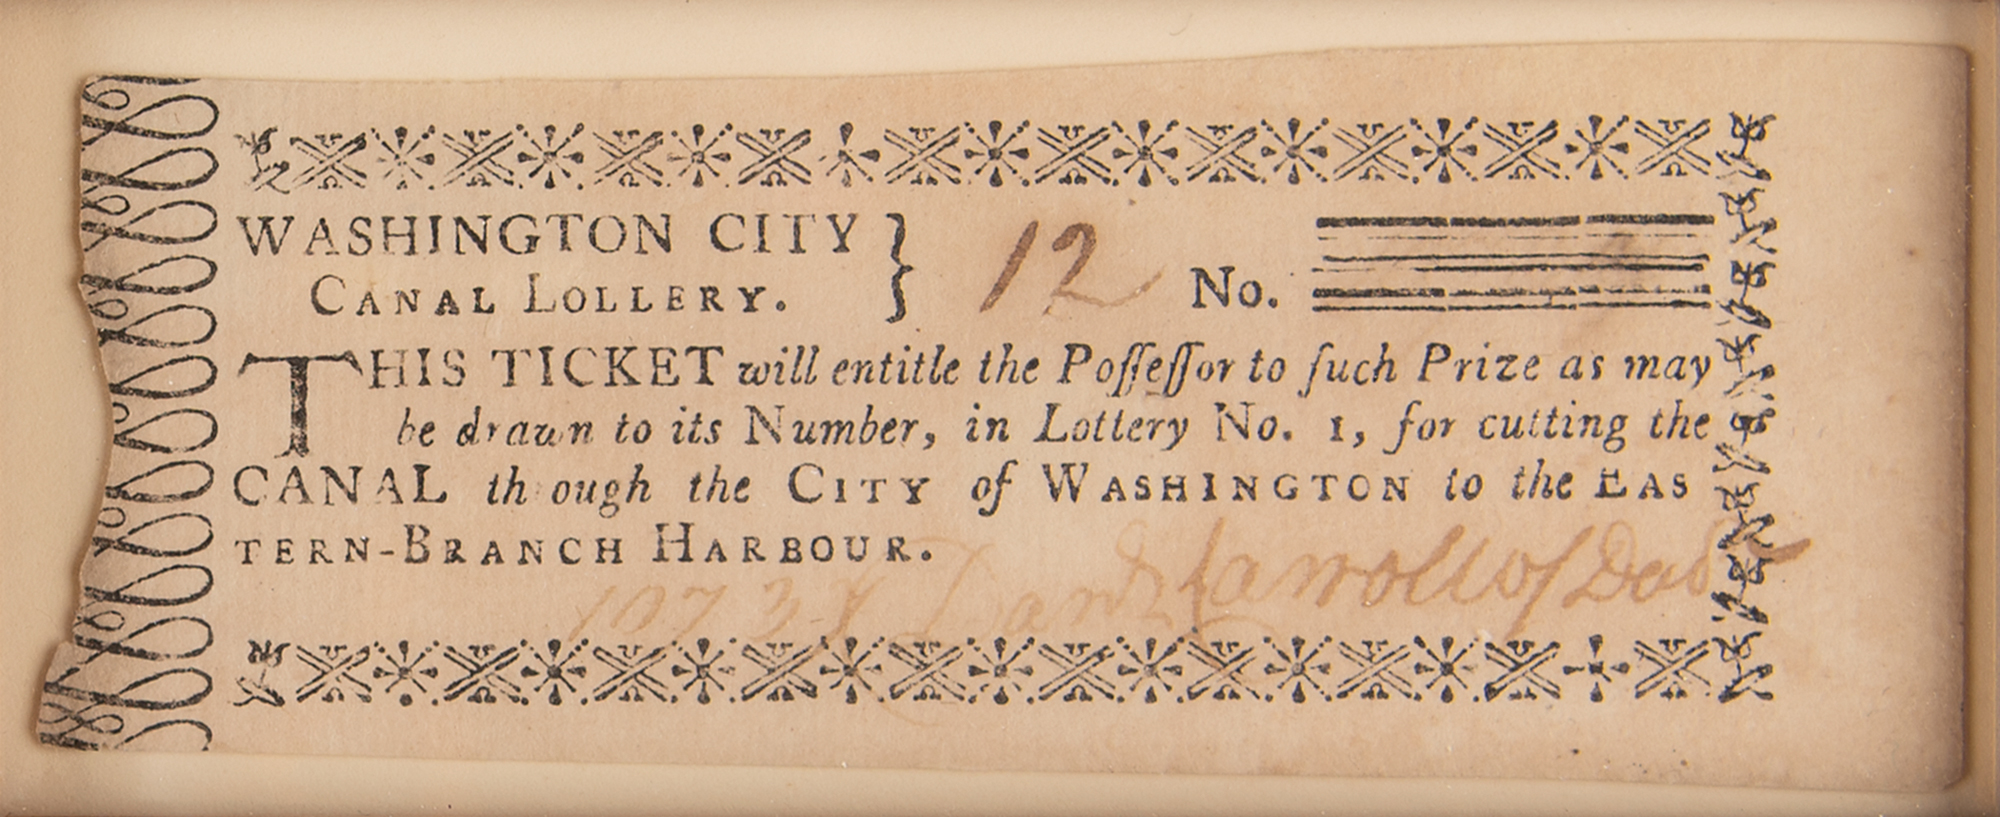 WASHINGTON CITY } 12 No.
CANAL LOLLERY.
THIS TICKET will entitle the Poſſeſſor to ſuch Prize as may
be drawn to its Number, in Lottery No. 1, for cutting the
CANAL th ough the CITY of WASHINGTON to the EAS
TERN-BRANCH HARBOUR.
Danl Carroll of Dud